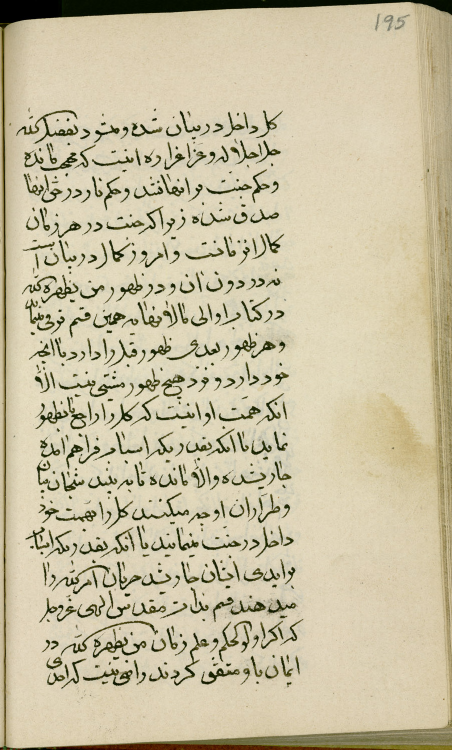 195
کل داخل در بیان شده و میشود بفضل الله
جل اجلاله و عز اعزازه اینست که محجب مانده
و حکم جنت بر آنها نشد و حکم نار در حق آنها
صدق شده زیرا که جنت در هر زمان
کمال آن زمانست و امروز کمال در بیان است
نه در دون آن و در ظهور من یظهره الله
در کتاب او الی مالا نهایه همین قسم ترقی مینماید
و هر ظهور بعدی ظهور قبل را دارد با آنچه
خود دارد و نزد هیچ ظهور مشیتی نیست الا
آنکه همت او اینست که کل را داخل ظهور
نماید با آنکه بقدریکه اسباب فراهم آمده
جاری شده والا مانده تا به بینید شجان بیان
و طرازان او چه میکنند کل را بهمت خود
داخل در جنت مینمایند یا آنکه بقدریکه اسباب
بر ایدی ایشان جاری شد جریان امر الله را
میدهند قسم بذات مقدس الهی عز و جل
که اگر اولوالحکم و علم زمان من یظهره الله در
ایمان باو متفق گردند راضی نیست که احدی